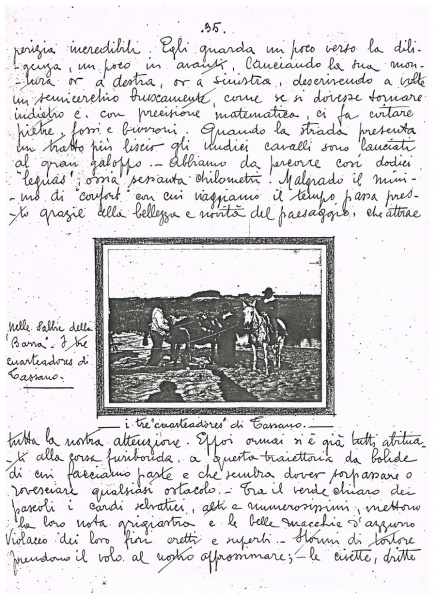 .35.
perizia incredibili. Egli guarda un poco verso la dili-
genza, un poco in avanti, lanciando la sua mon-
tura or a destra, or a sinistra, descrivendo a volte
un semicerchio bruscamente, come se si dovesse tornare
indietro e con precisione matematica, ci fa evitare
pietre, fossi e burroni. Quando la strada presenta
un tratto più liscio gli undici cavalli sono lanciati
al gran galoppo. - Abbiamo da percorre così dodici
"leguas", ossia sessanta chilometri. Malgrado il mini-
mo di confort con cui viaggiamo il tempo passa pres-
to grazie alla bellezza e novità del paesaggio, che attrae
nelle sabbie della
"Barra". I tre
cuarteadores di
Cassano.
i tre "cuarteadores" di Cassano.
tutta la nostra attenzione. Eppoi ormai si è già tutti abitua-
ti alla corsa furibonda, a questa traiettoria da bolide
di cui facciamo parte e che sembra dover sorpassare o
rovesciare qualsiasi ostacolo. - Tra il verde chiaro dei
pascoli i cardi selvatici, alti e numerosissimi, mettono
la loro nota grigiastra e le belle macchie d'azzurro
violaceo dei loro fiori eretti e superbi. - Stormi di tortore
prendono il volo al nostro approssimare; - le civette, dritte